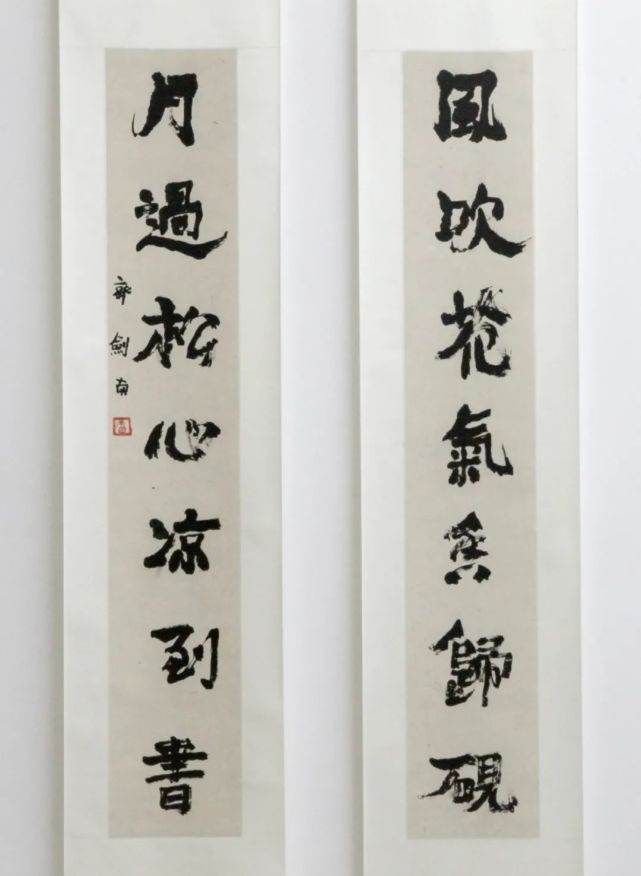 風吹花氣香歸硯
月過松心凉到書
郭劍南